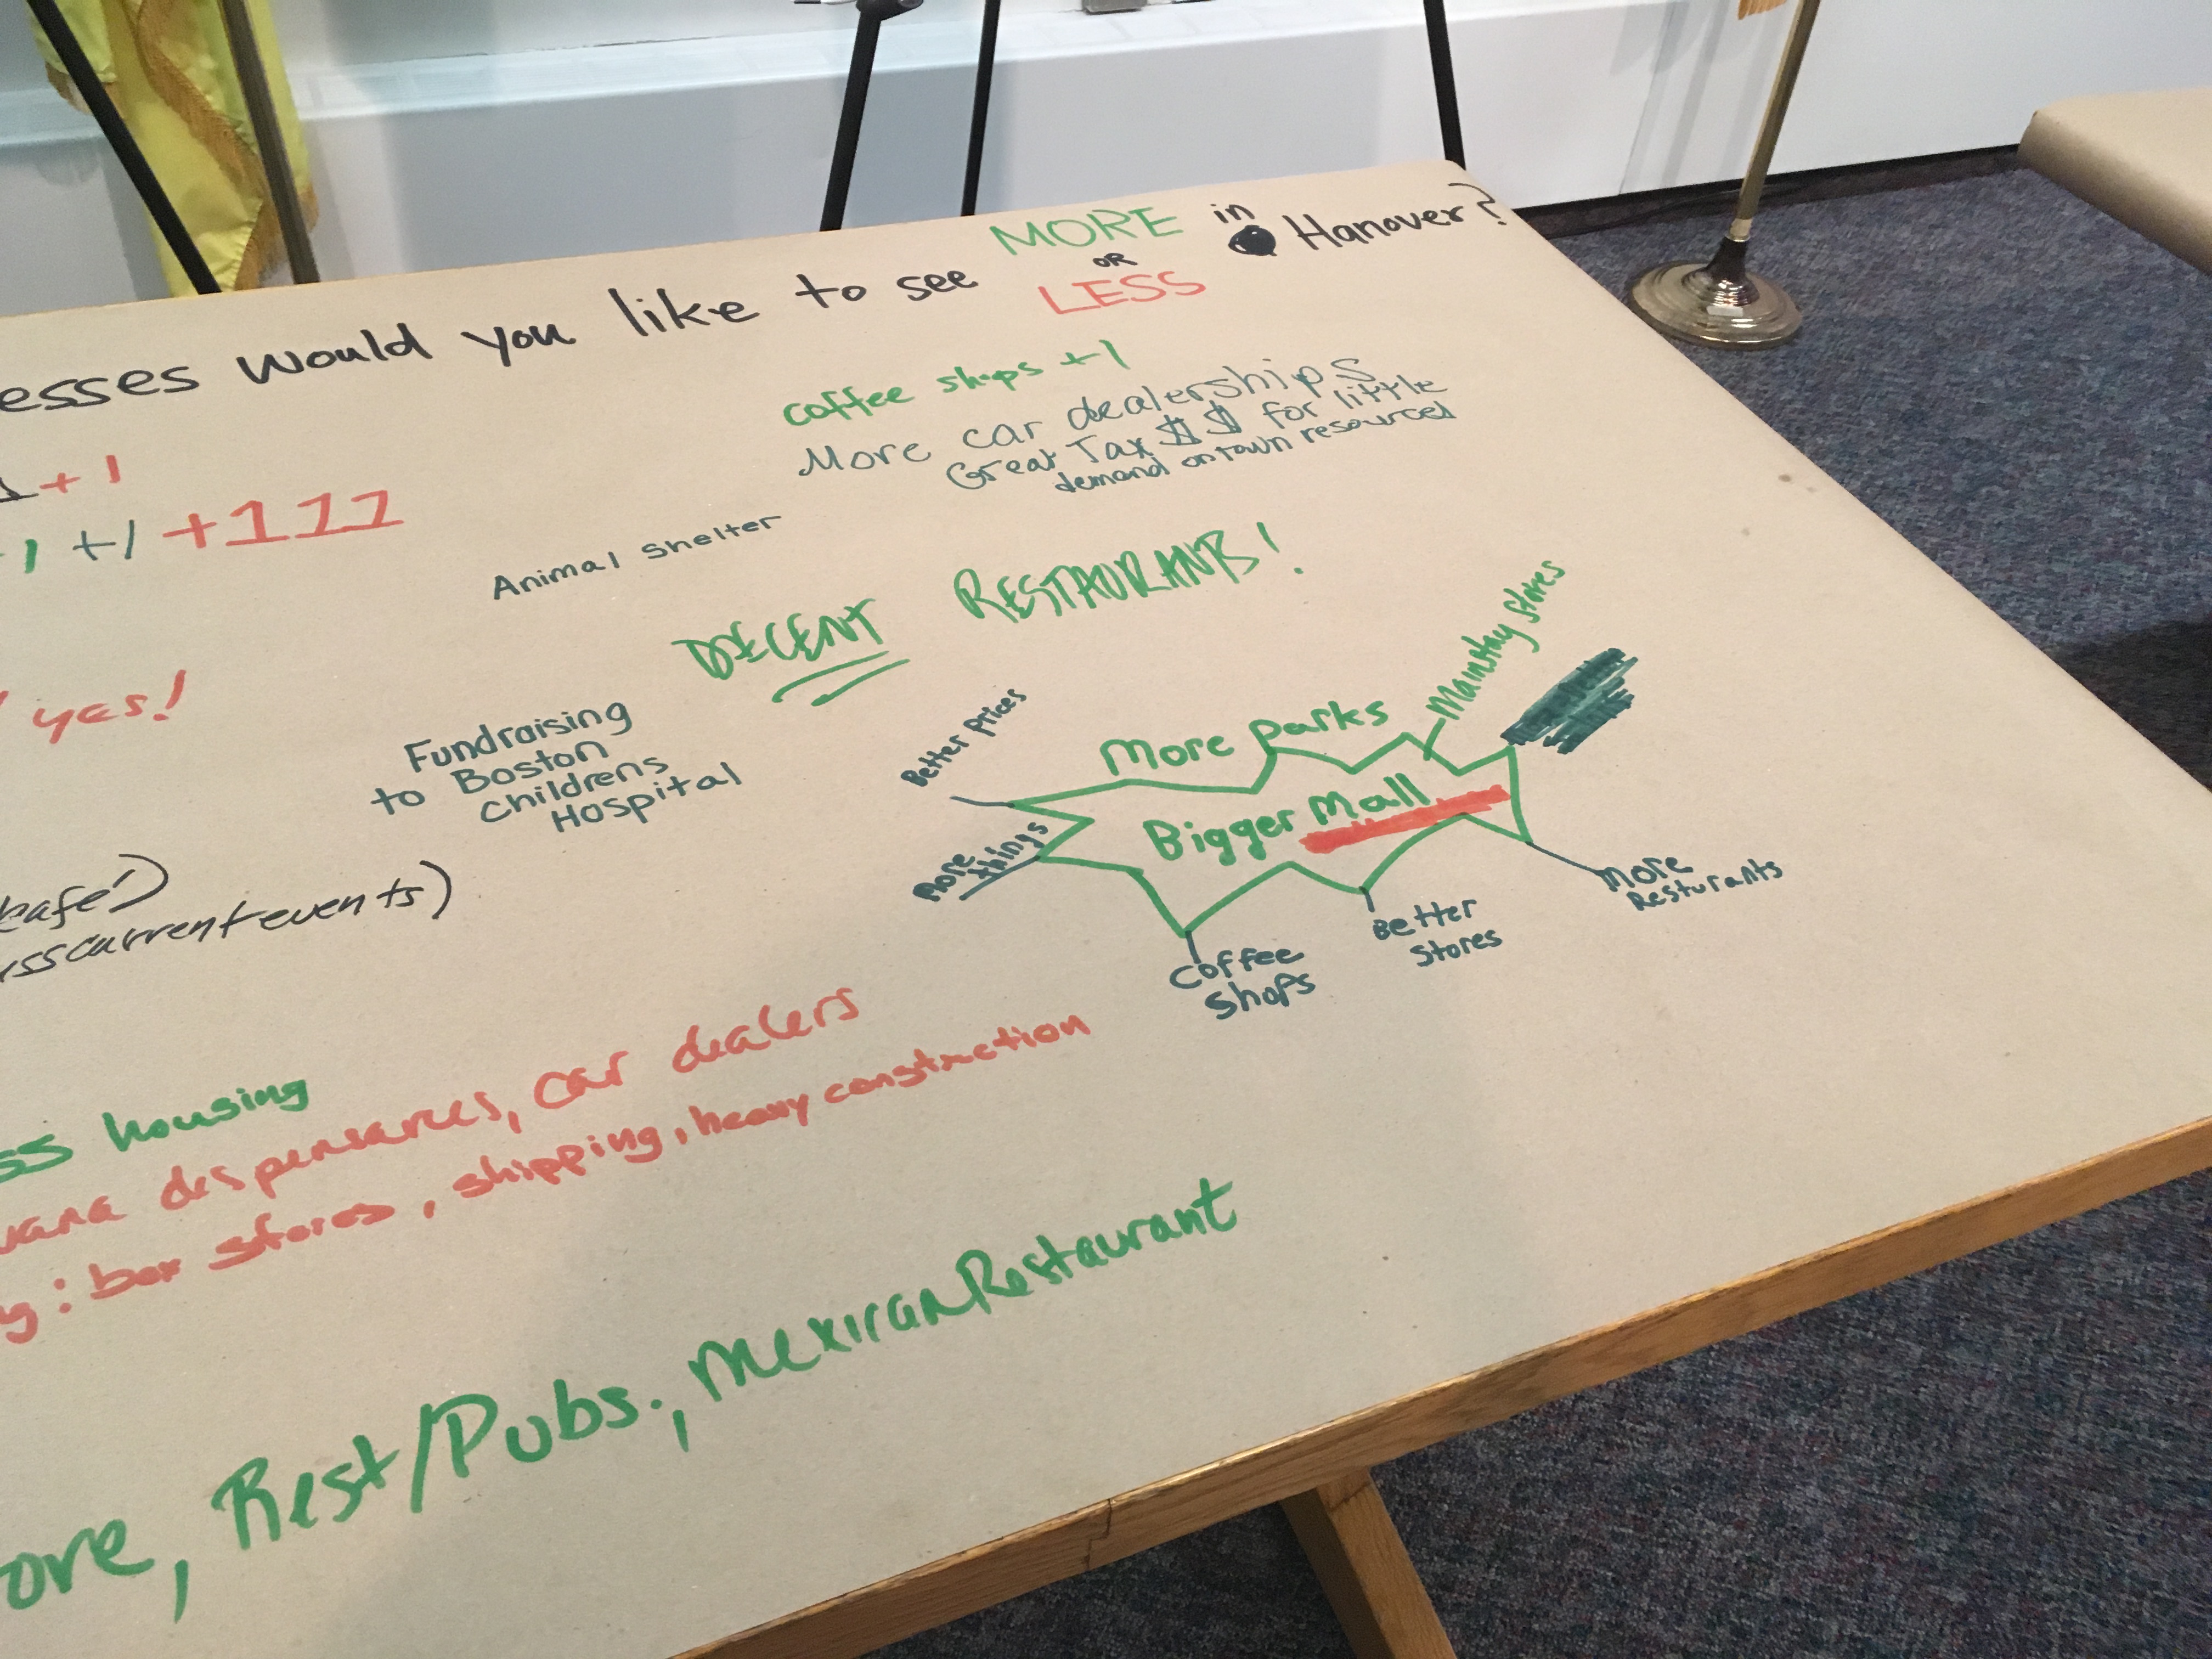 esses would you like to see MORE OR LESS in Hanover?
coffee shops +1
More car dealerships
Great Tax $$ for little
demand on town resources
1 + 1
+1 +1 +111
Animal Shelter
DECENT RESTAURANTS!
yes!
Fundraising
to Boston
Childrens
Hospital
Better prices
More parks
Mainstay Stores
Bigger Mall
More
things
Coffee
Shops
Better
Stores
More
Resturants
cafe)
uss current events)
ss housing
uana dispensaries, car dealers
g: box stores, shipping, heavy construction
ore, Rest/Pubs., Mexican Restaurant